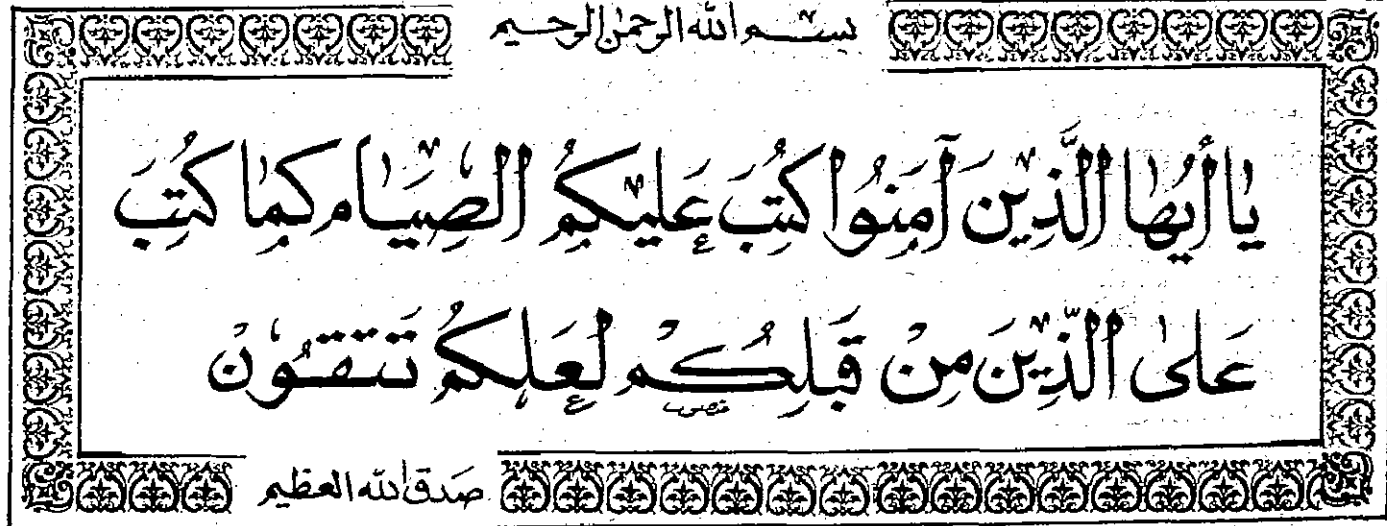 بسم الله الرحمن الرحيم
يا أيها الذين آمنوا كتب عليكم الصيام كما كتب
على الذين من قبلكم لعلكم تتقون
صدق الله العظيم